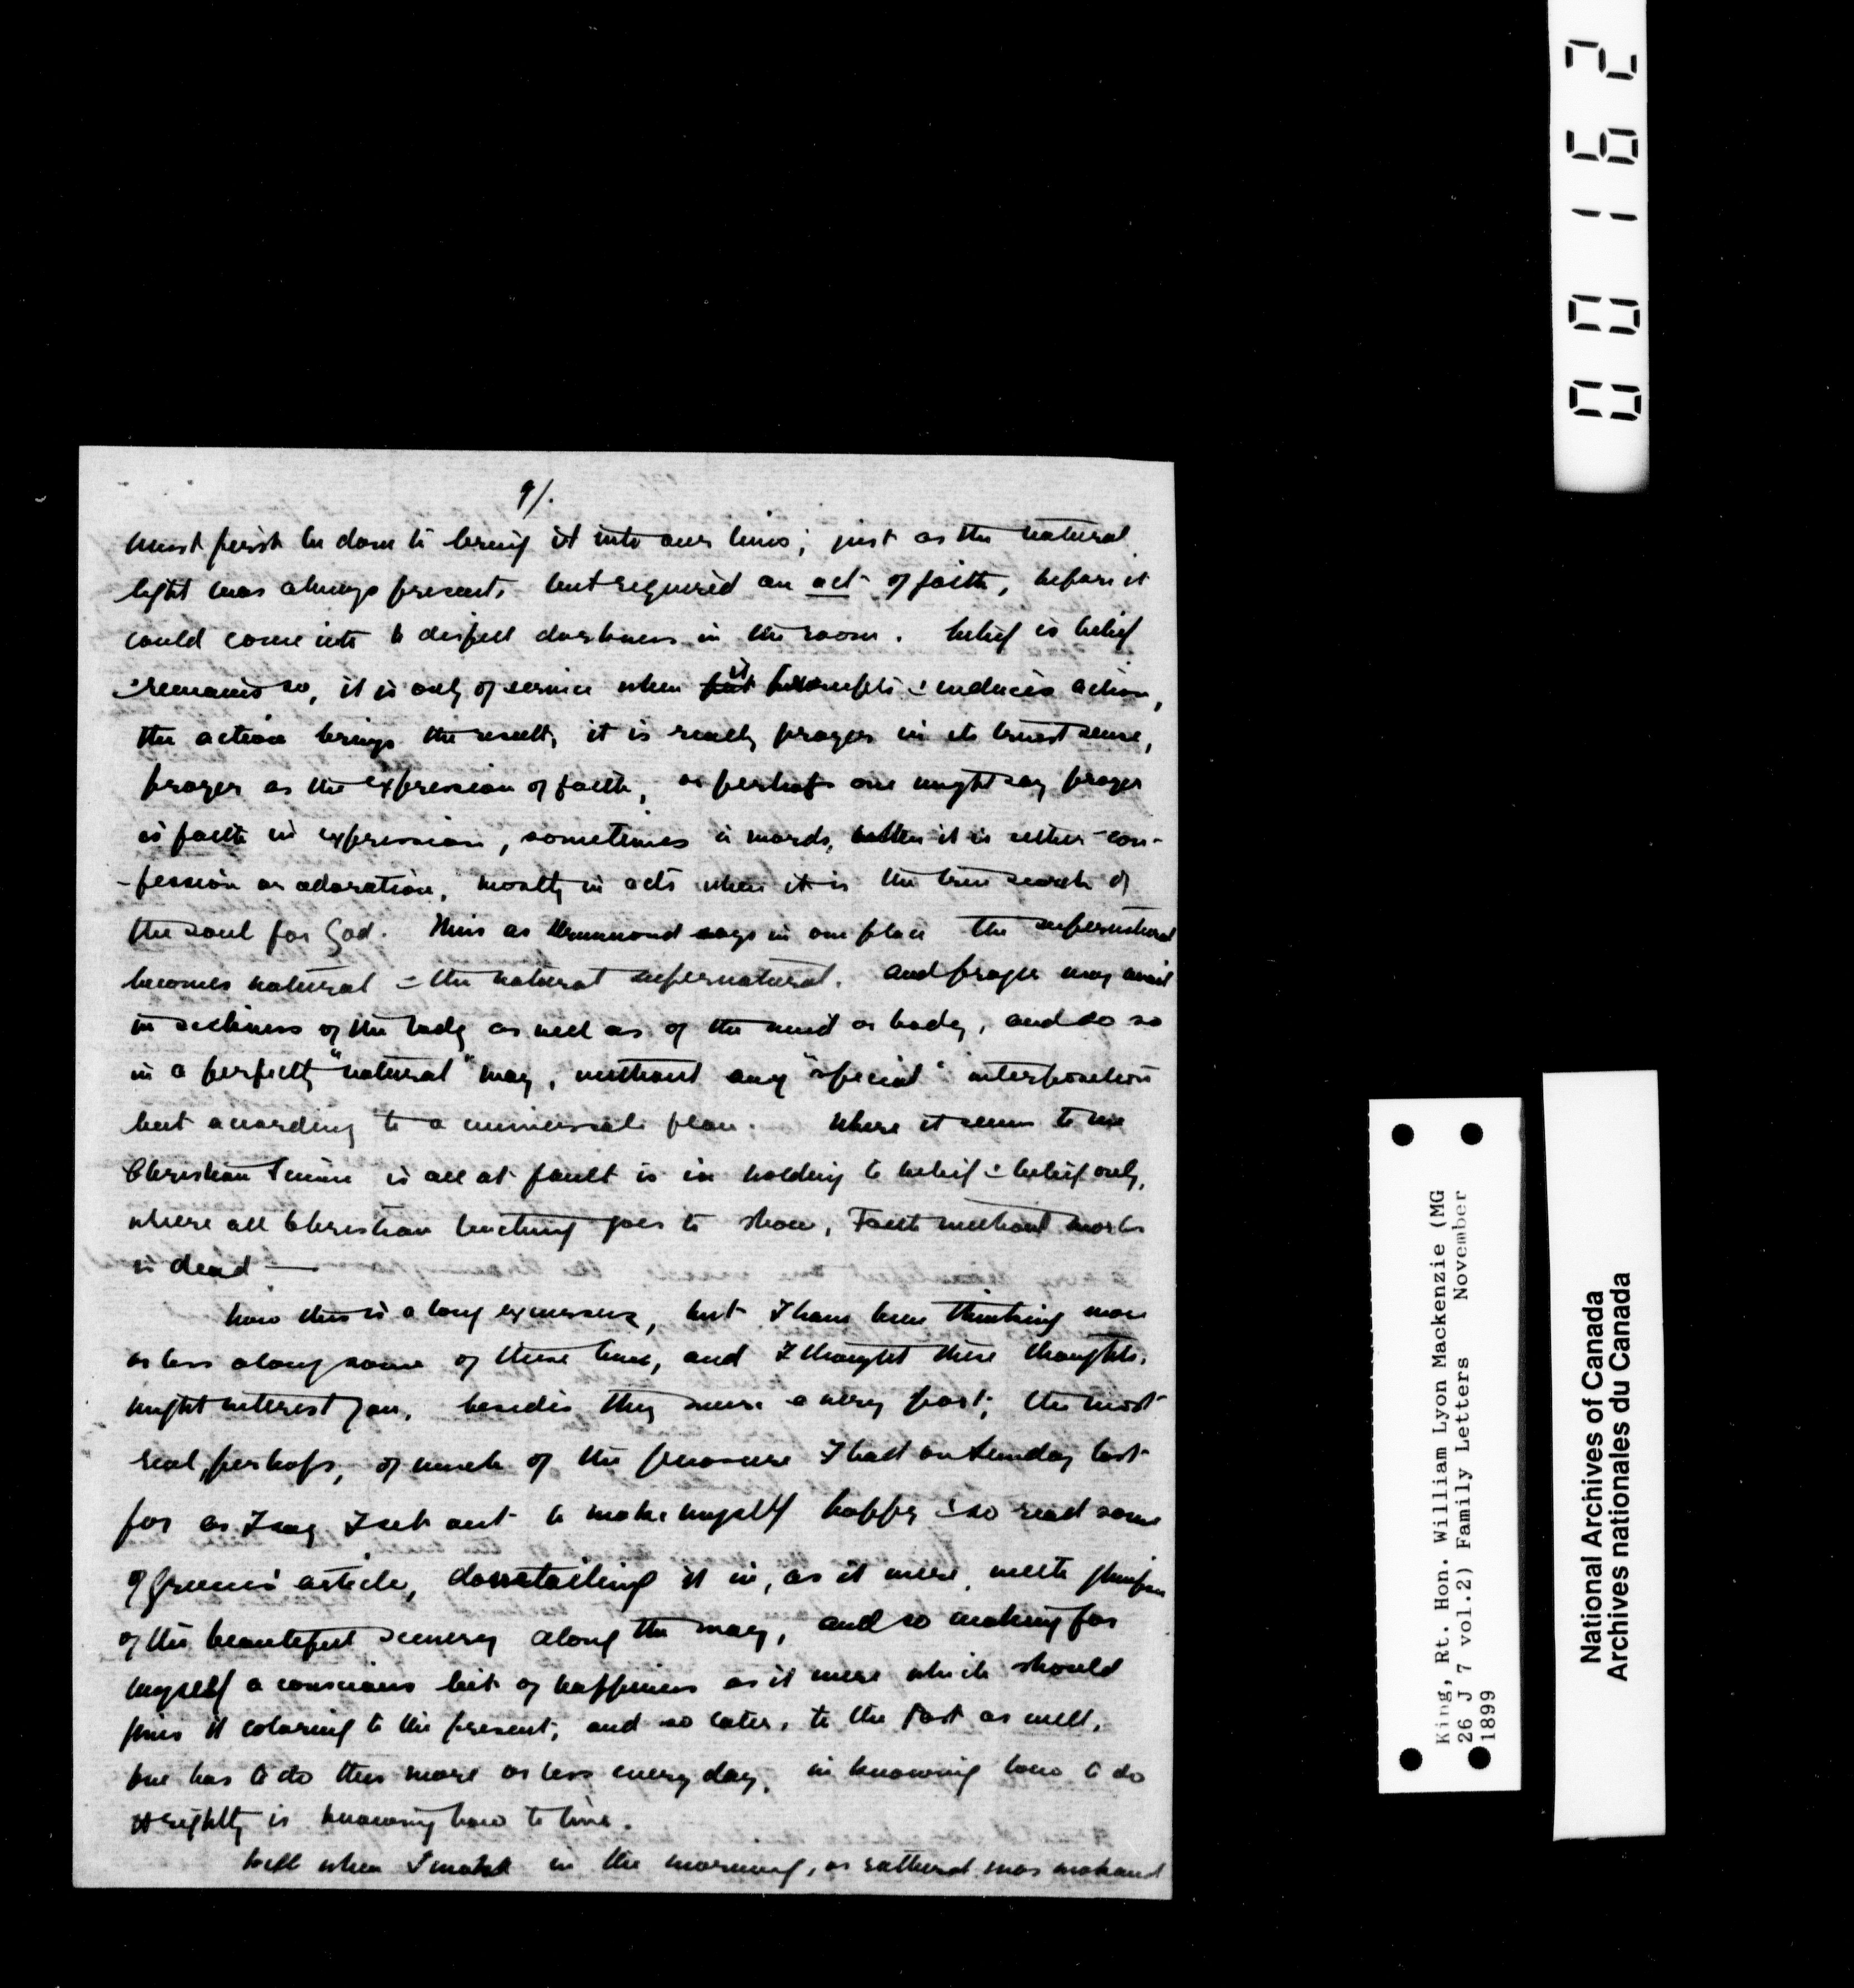 9/.
must first be done to bring it into our lives; just as the natural
light was always present, but required an act of faith, before it
could come into & dispell darkness in the room. belief is belief
& remains so, it is only of service when it prompts & induces action,
the action brings the result, it is really prayer in its truest sense,
prayer as the expression of faith, or perhaps one might say prayer
is faith in expression, sometimes in words, when it is either con-
-fession or adoration, mostly in acts when it is the true search of
the soul for God. Thus as Drummond says in one place the supernatural
becomes natural & the natural supernatural. and prayer may avail
in sickness of the body as well as of the mind or body, and do so
in a perfectly "natural" way, without any "special" interposition
but according to a universal plan. Where it seems to me
Christian Science is all at fault is in holding to belief & belief only,
where all Christian teaching goes to show, Faith without works
is dead —
Now this is a long excursus, but I have been thinking more
or less along some of these lines, and I thought these thoughts
might interest you, besides they were a very part, the most
real, perhaps, of much of the pleasure I had on Sunday last
for as I say I set out to make myself happy & so read some
of Green's article, dovetailing it in, as it were, with glimpses
of the beautiful scenery along the way, and so making for
myself a conscious bit of happiness as it were which should
give it coloring to the present, and so later, to the past as well,
one has to do this more or less every day, in knowing how to do
it rightly is knowing how to live.
Well when I woke in the morning, or rather was wakened
00162
King, Rt. Hon. William Lyon Mackenzie (MG
26 J 7 vol.2) Family Letters November
1899
National Archives of Canada
Archives nationales du Canada